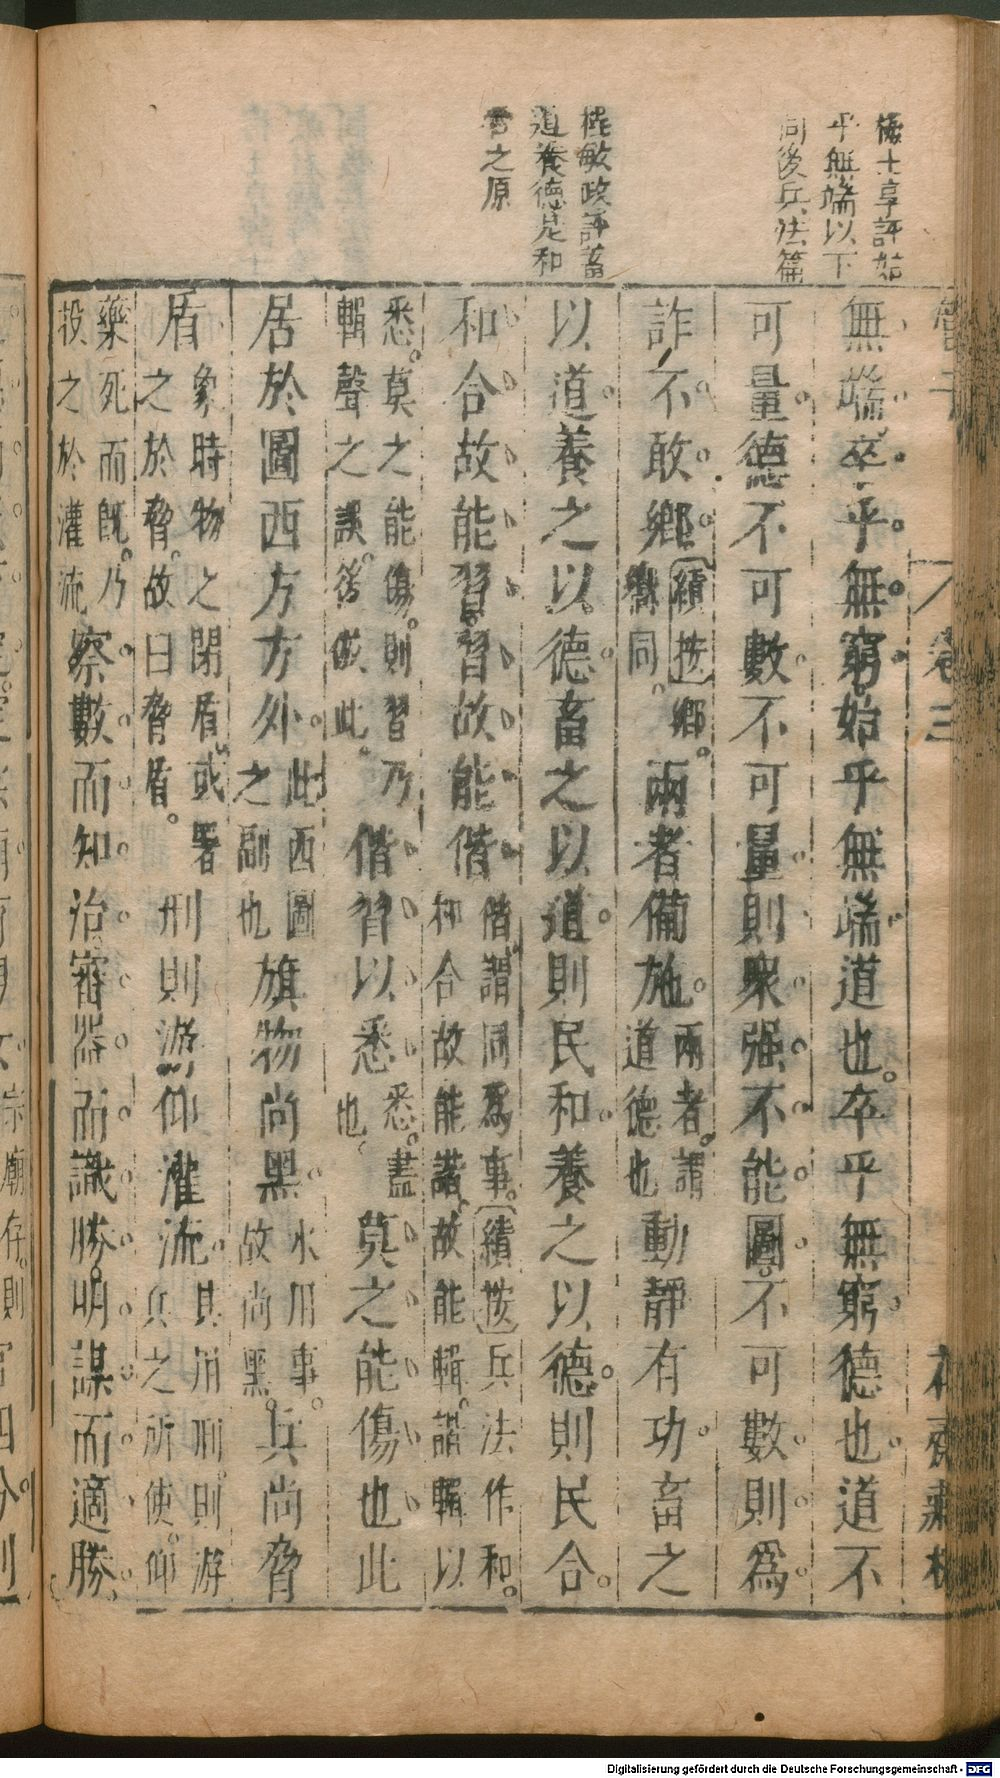 梅士享評始
乎無端以下
同後兵法篇
程敏政評畜
道養德是和
合之原
管子
卷三
花齋藏板
無端卒乎無窮始乎無端道也卒乎無窮德也道不
可量德不可數不可量則衆强不能圖不可數則爲
詐不敢鄉〔續按〕鄉嚮同兩者備施兩者謂道德也動靜有功畜之
以道養之以德畜之以道則民和養之以德則民合
和合故能習習故能偕偕謂同爲事〔續按〕兵法作和和合故能諧故能輯諧輯以
悉莫之能傷則習乃輯聲之誤答倣此偕習以悉悉盡也莫之能傷也此
居於圖西方方外此西圖之副也旗物尚黑水用事故尚黑兵尚脅
盾象時物之閉盾或署之於脅故曰脅盾刑則游仰灌流其用刑則游兵之所使仰
藥死而旣乃投之於灌流察數而知治審器而識勝明謀而適勝
宗廟存則官四分則
Digitalisierung gefördert durch die Deutsche Forschungsgemeinschaft - DFG